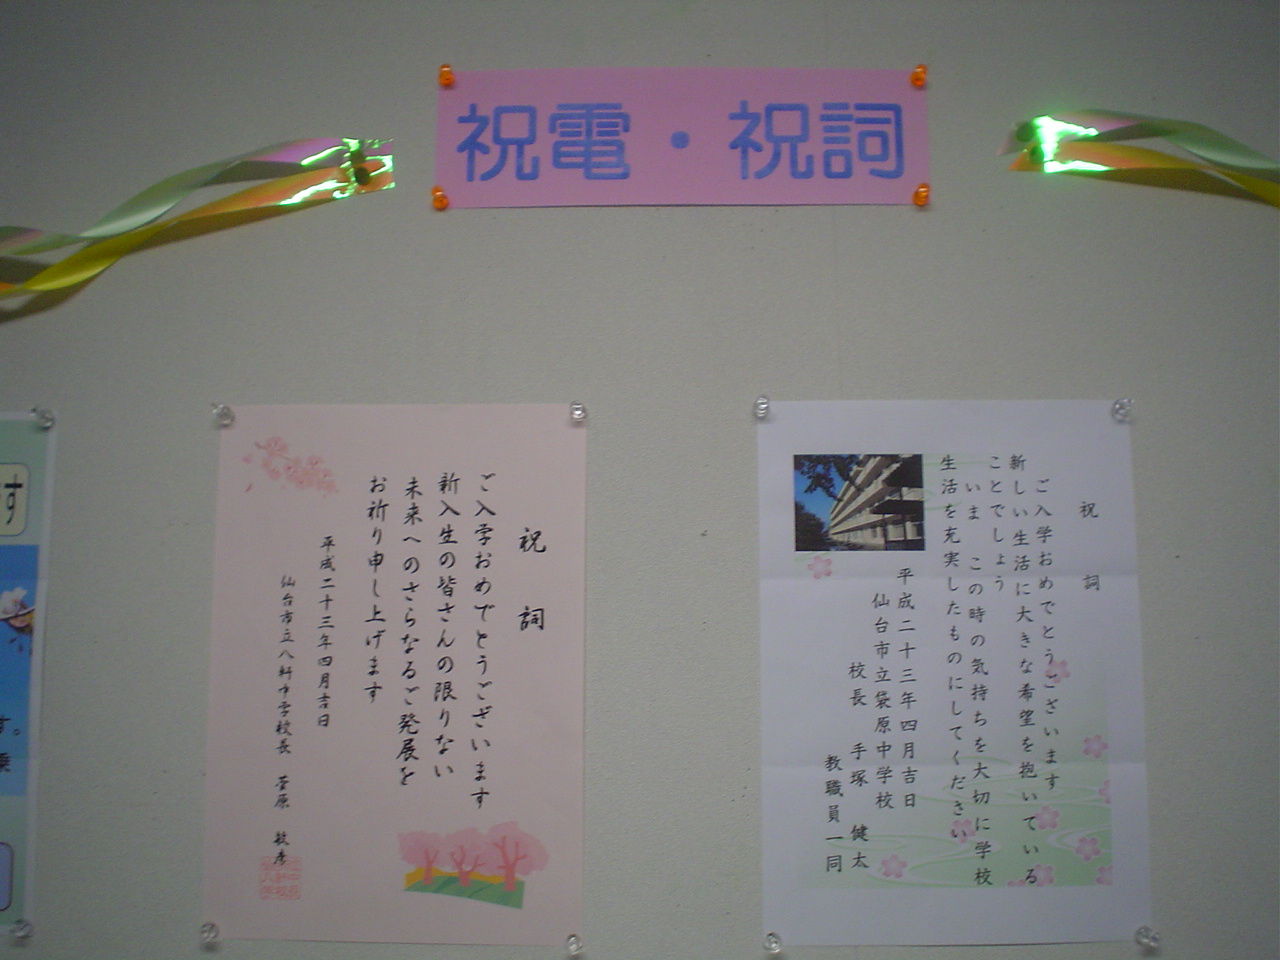 祝電・祝詞
祝詞
ご入学おめでとうございます
新しい生活に大きな希望を抱いている
ことでしょう
いま この時の気持ちを大切に学校
生活を充実したものにしてください
平成二十三年四月吉日
仙台市立袋原中学校
校長 手塚 健太
教職員一同
祝詞
ご入学おめでとうございます
新入生の皆さんの限りない
未来へのさらなるご発展を
お祈り申し上げます
平成二十三年四月吉日
仙台市立八軒中学校長 菅原 敏彦
す
す。